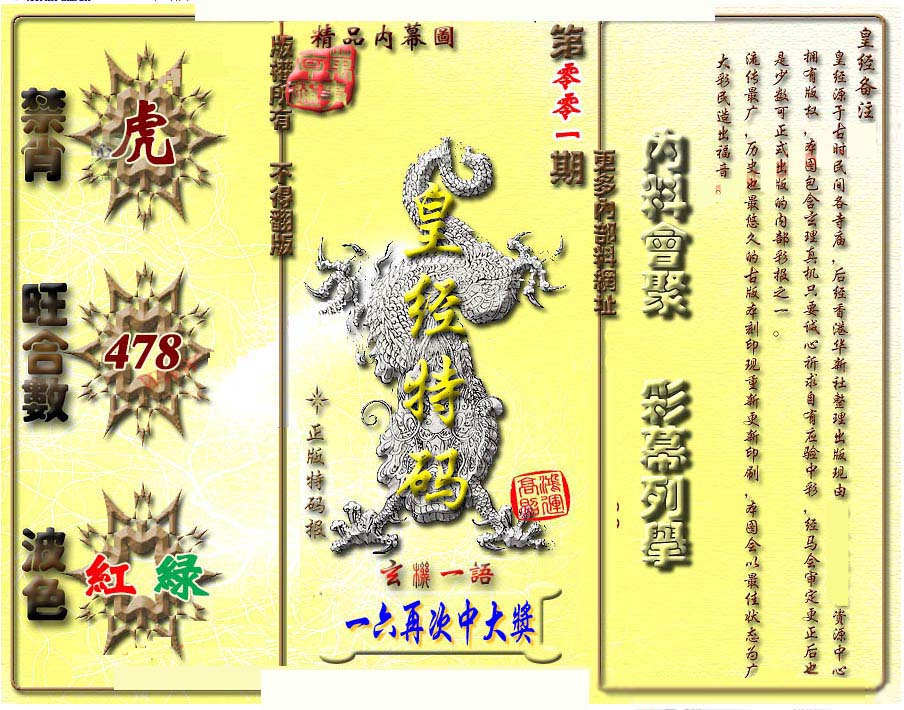 皇经备注
皇经源于古时民间各寺庙，后经香港华新社整理出版现由 资源中心
拥有版权，本图包含玄理真机只要诚心祈求自有应验中彩，经马会审定更正后也
是少数可正式出版的内部彩报之一。
流传最广，历史也最悠久的古版本刻印现重新更新印刷，本图会以最佳状态为广
大彩民造出福音
内料會聚 彩幕列舉
更多內部料網址
第零零一期
精品内幕圖
皇经特码
正版特码报
鴻運高照
玄機一語
一六再次中大獎
版權所有 不得翻版
禁肖
虎
旺合數
478
波色
紅 綠